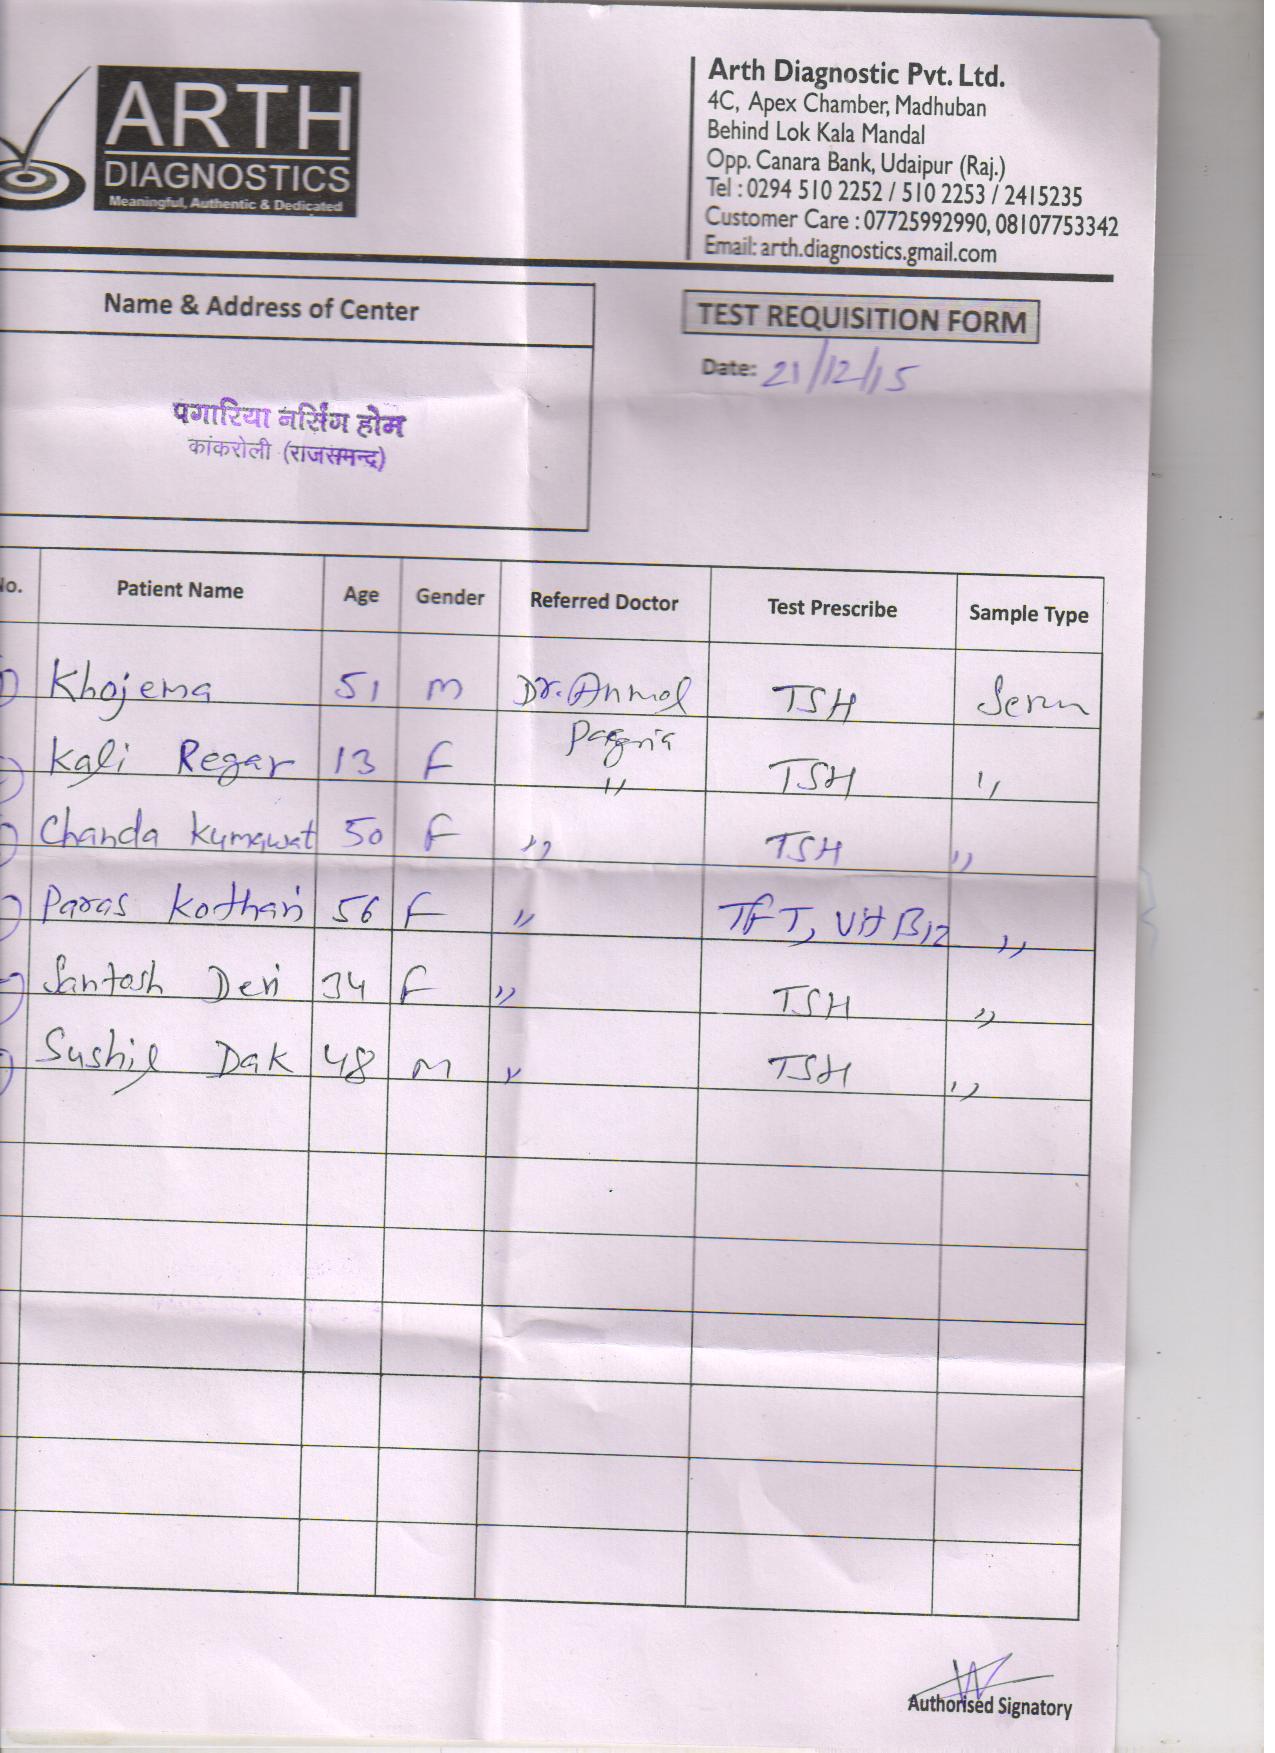 ARTH
DIAGNOSTICS
Meaningful, Authentic & Dedicated
Arth Diagnostic Pvt. Ltd.
4C, Apex Chamber, Madhuban
Behind Lok Kala Mandal
Opp. Canara Bank, Udaipur (Raj.)
Tel : 0294 510 2252 / 510 2253 / 2415235
Customer Care : 07725992990, 08107753342
Email: arth.diagnostics.gmail.com
Name & Address of Center
TEST REQUISITION FORM
Date: 21/12/15
पगारिया नर्सिंग होम
कांकरोली (राजसमन्द)
No. Patient Name Age Gender Referred Doctor Test Prescribe Sample Type
Khojema 51 M Dr. Anmol TSH Serum
Pagaria
Kali Regar 13 F " TSH "
Chanda Kumawat 50 F " TSH "
Paras Kothari 56 F " TFT, Vit B12 "
Santosh Devi 34 F " TSH "
Sushil Dak 48 M " TSH "
Authorised Signatory